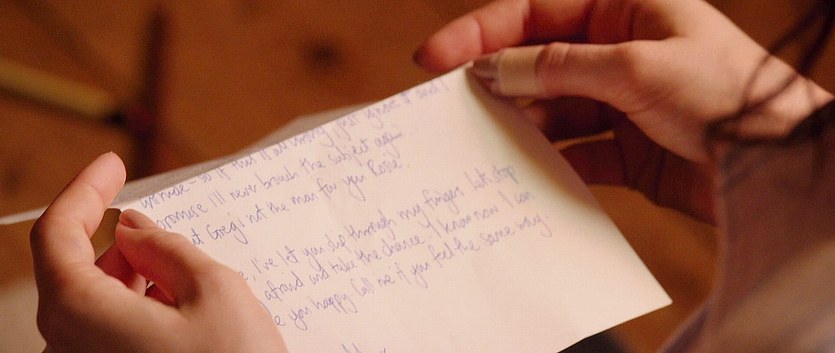 if this is all wrong just ignore it and I
promise I'll never broach the subject again
Greg's not the man for you Rosie.
I've let you slip through my fingers. Let's stop
afraid and take the chance. I know now I can
you happy. Call me if you feel the same way.